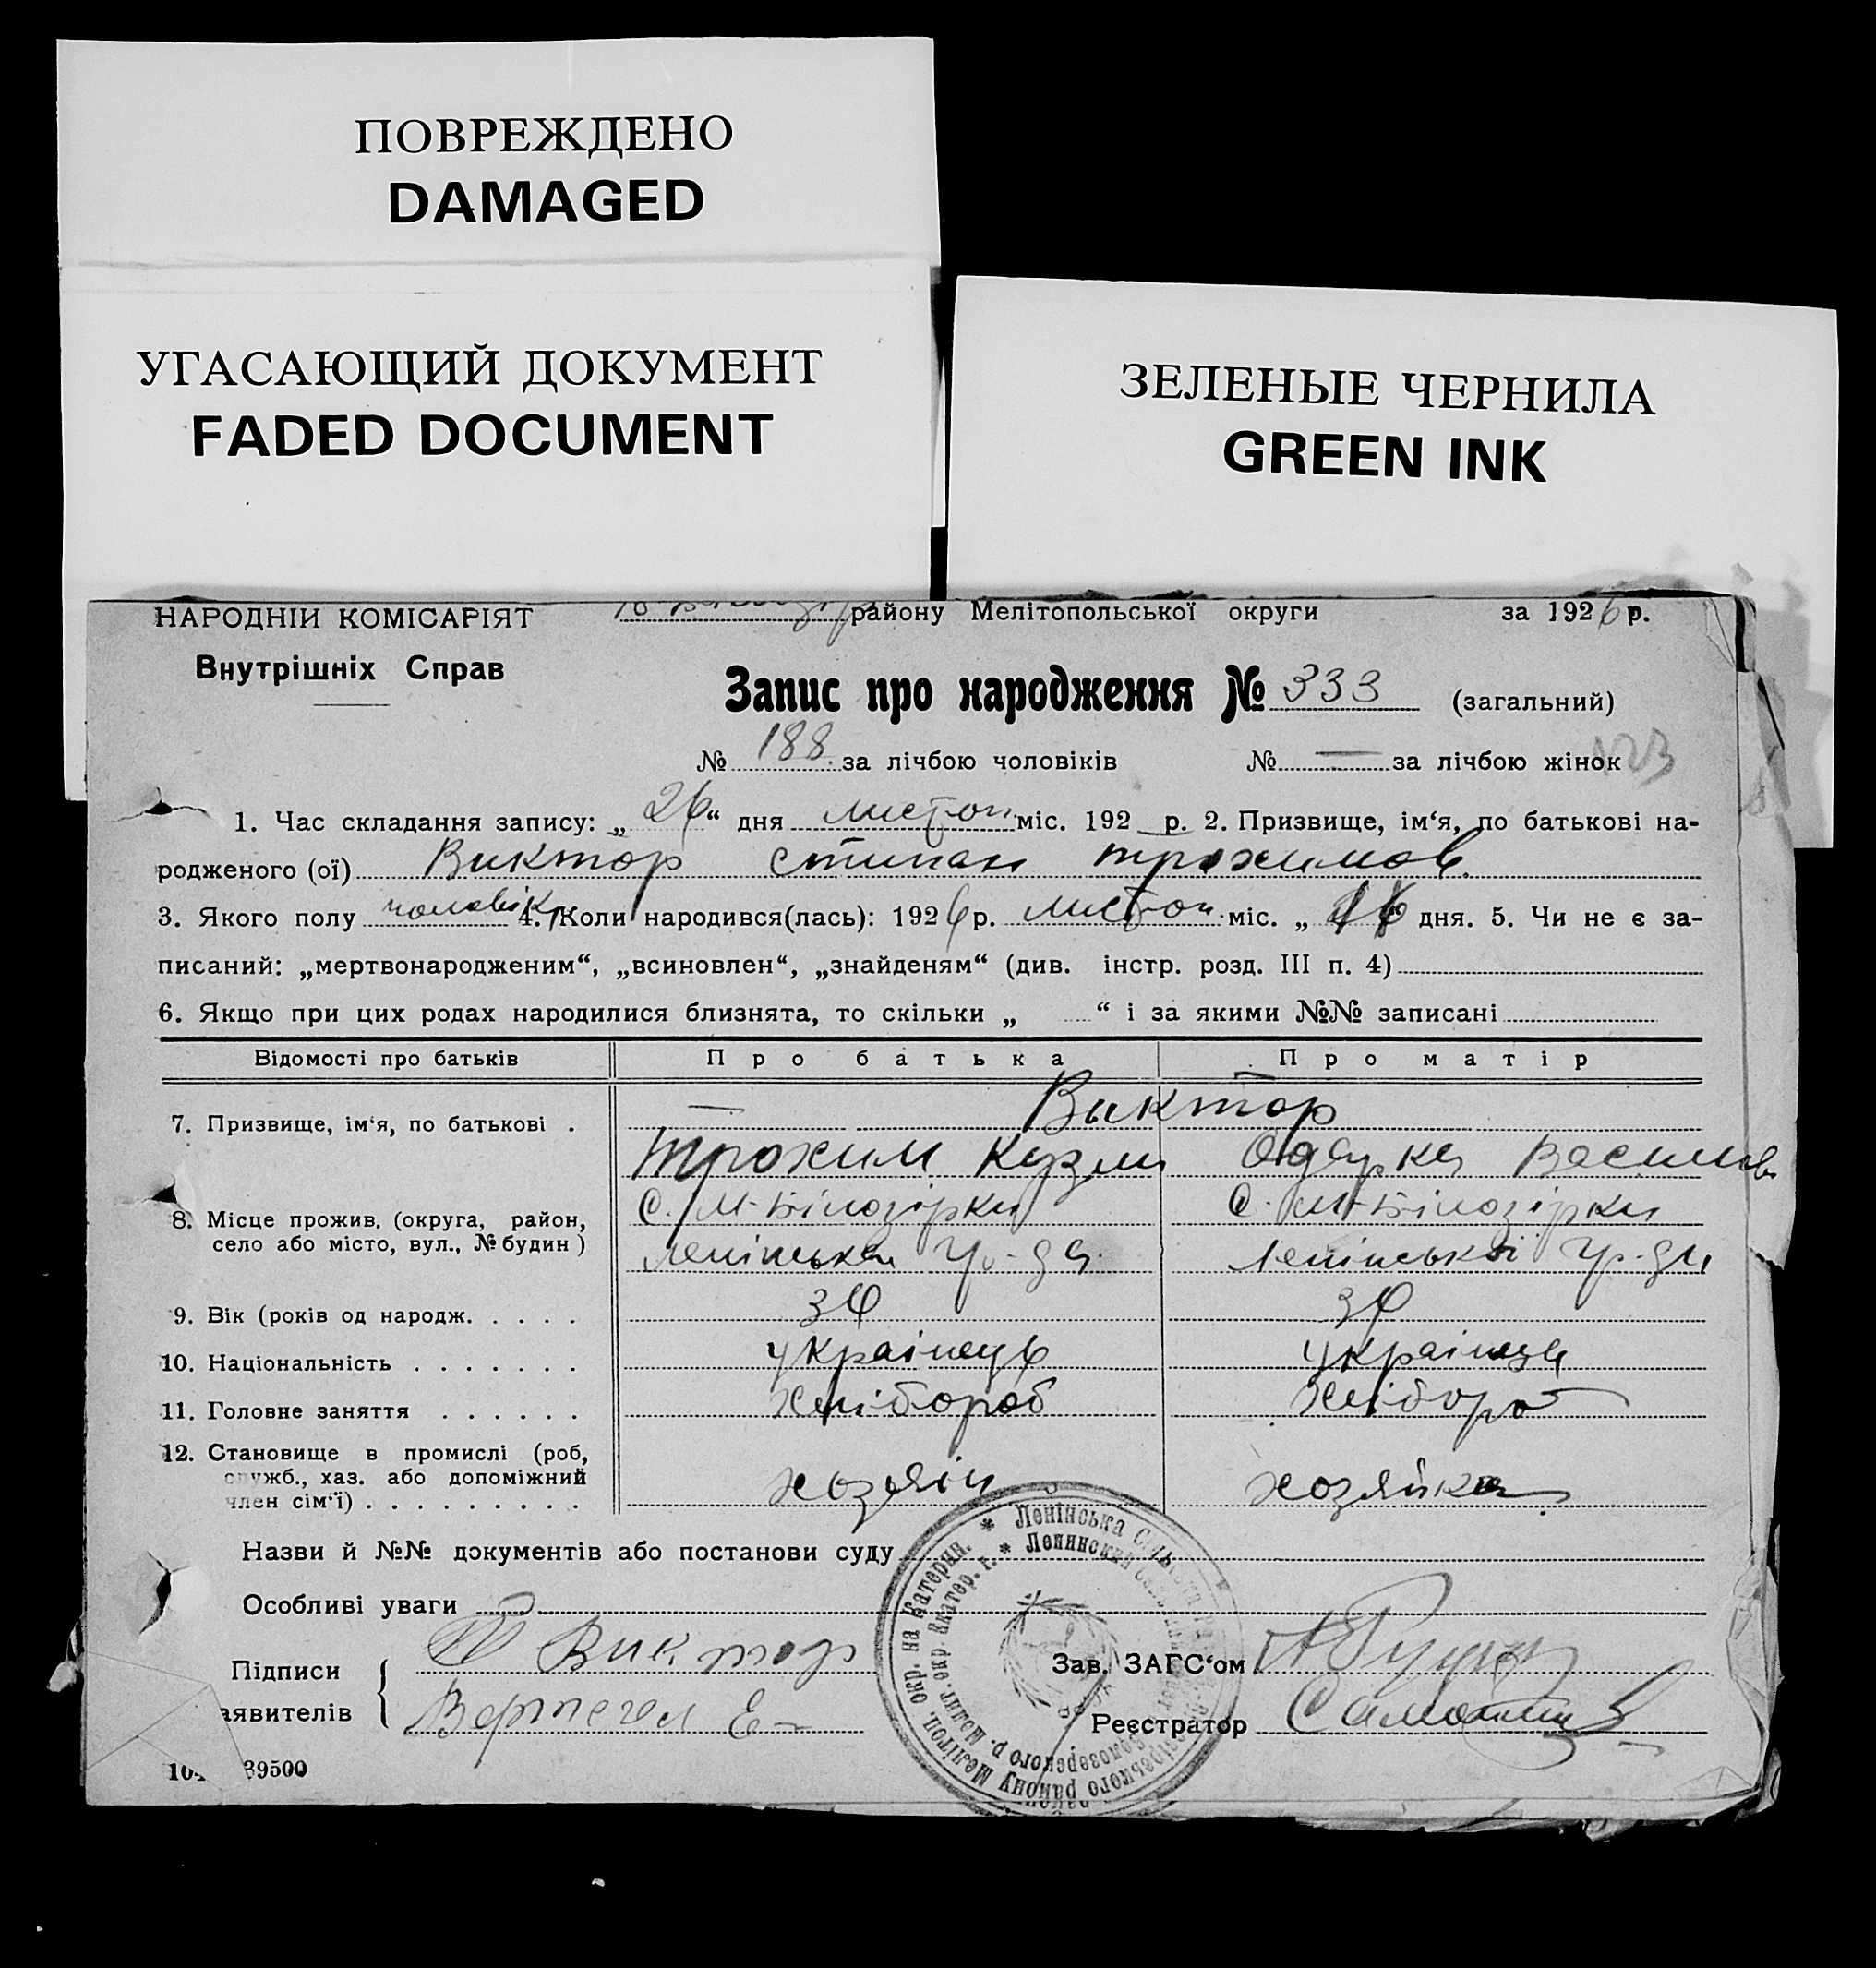 ПОВРЕЖДЕНО
DAMAGED
УГАСАЮЩИЙ ДОКУМЕНТ
FADED DOCUMENT
ЗЕЛЕНЫЕ ЧЕРНИЛА
GREEN INK
НАРОДНІЙ КОМІСАРІЯТ
району Мелітопольської округи за 1926 р.
Внутрішніх Справ
Запис про народження № 333 (загальний)
№ 188 за лічбою чоловіків № — за лічбою жінок
1. Час складання запису: „26“ дня листоп міс. 192 р. 2. Призвище, ім‘я, по батькові на-
родженого (ої) Виктор степан трохимов
3. Якого полу чоловік 4. Коли народився(лась): 1926 р. листоп. міс. „ дня. 5. Чи не є за-
писаний: „мертвонародженим“, „всиновлен“, „знайденям“ (див. інстр. розд. III п. 4)
6. Якщо при цих родах народилися близнята, то скільки „ “ і за якими №№ записані
Відомості про батьків Про батька Про матір
7. Призвище, ім‘я, по батькові . — Виктор
Трохим Кузми Одарка Васильов
8. Місце прожив. (округа, район, С. М-Білозірки С. М-Білозірки
село або місто, вул., № будин) Ленінська гр-да Ленінської гр-ди
9. Вік (років од народж. . . . .
10. Національність . . . . . . . українець українец
11. Головне заняття . . . . . . хлібороб хліборо
12. Становище в промислі (роб,
служб., хаз. або допоміжний
член сім‘ї) . . . . . . . . . хозяїн хозяйка
Назви й №№ документів або постанови суду
Особливі уваги
Підписи Виктор
Зав. ЗАГС‘ом
аявителів
Реєстратор
39500
* Ленінська Сільська Рада
Білозірського району Меліτοп. окр. на Катерин.
* Ленинский
Белозерского р. Мелит. окр Екатер. г.